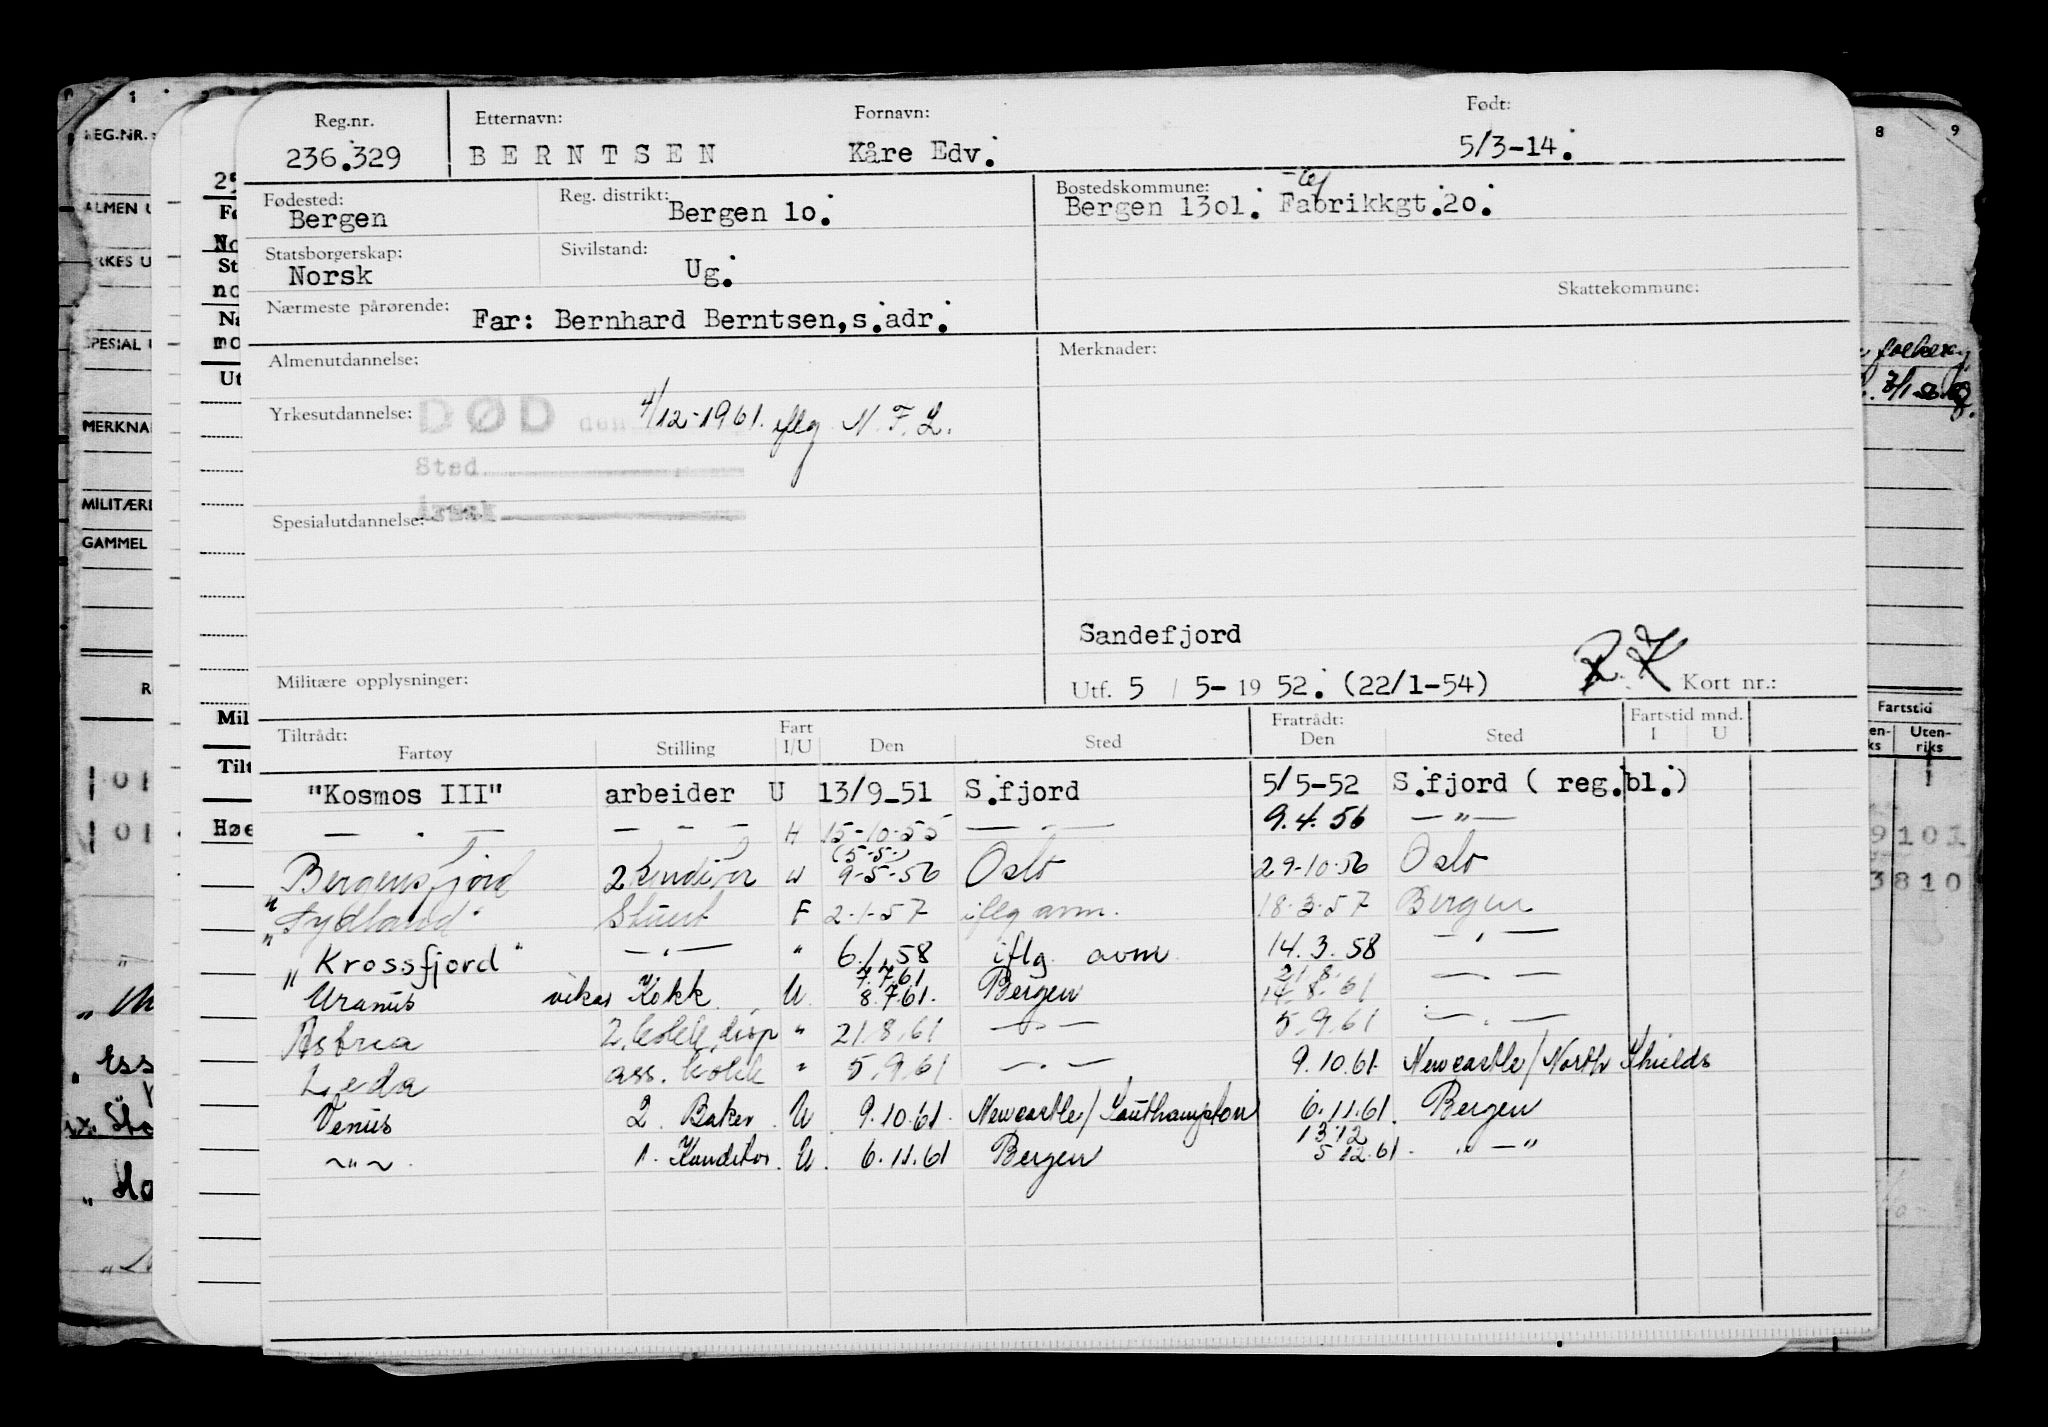 Reg.nr. Etternavn: Fornavn: Født:
236.329 BERNTSEN Kåre Edv. 5/3-14.
Fødested: Reg. distrikt: Bostedskommune:
Bergen Bergen 1o. Bergen 13o1. Fabrikkgt.2o.
Statsborgerskap: Sivilstand:
Norsk Ug.
Skattekommune:
Nærmeste pårørende: Far: Bernhard Berntsen,s.adr.
Almenutdannelse: Merknader:
Yrkesutdannelse: DØD den 4/12-1961. iflg N.F.L.
Sted
Spesialutdannelse: Årsak
Sandefjord
Militære opplysninger: Utf. 5 / 5- 19 52. (22/1-54) Kort nr.:
Tiltrådt: Fart Fratrådt: Fartstid mnd.
Fartøy Stilling I/U Den Sted Den Sted I U
"Kosmos III" arbeider U 13/9-51 S.fjord 5/5-52 S.fjord ( reg.bl.)
— . — — - — H 15-10-55 — - — 9.4.56 — " —
(5-5-)
Bergensfjord 2 konditor U 9-5-56 Oslo 29-10-56 Oslo
"Sydland" Stuert F 2-1-57 iflg avm. 18.3.57 Bergen
"Krossfjord" — . — " 6.1.58 iflg. avm 14.3.58 — . —
7.7.61 21.8.
Uranus vikar Kokk U. 8.7.61. Bergen 14.8.61 — . —
Astrea 2. kokk disp " 21.8.61 — . — 5.9.61 — . —
Leda ass. kokk " 5.9.61 — . — 9.10.61. Newcastle/North Shields
Venus 2. Baker. U. 9.10.61. Newcastle/Southampton 6.11.61. Bergen
13.12
~ " ~. 1. Konditor. U. 6.11.61 Bergen 5.12.61. " — "
1
REG.NR.
ALMEN U
YRKES U
SPESIAL U
MERKNA
MILITÆRE
GAMMEL
Mil
Tilt
8 9
Fartstid
Uten-
riks
9101
3810